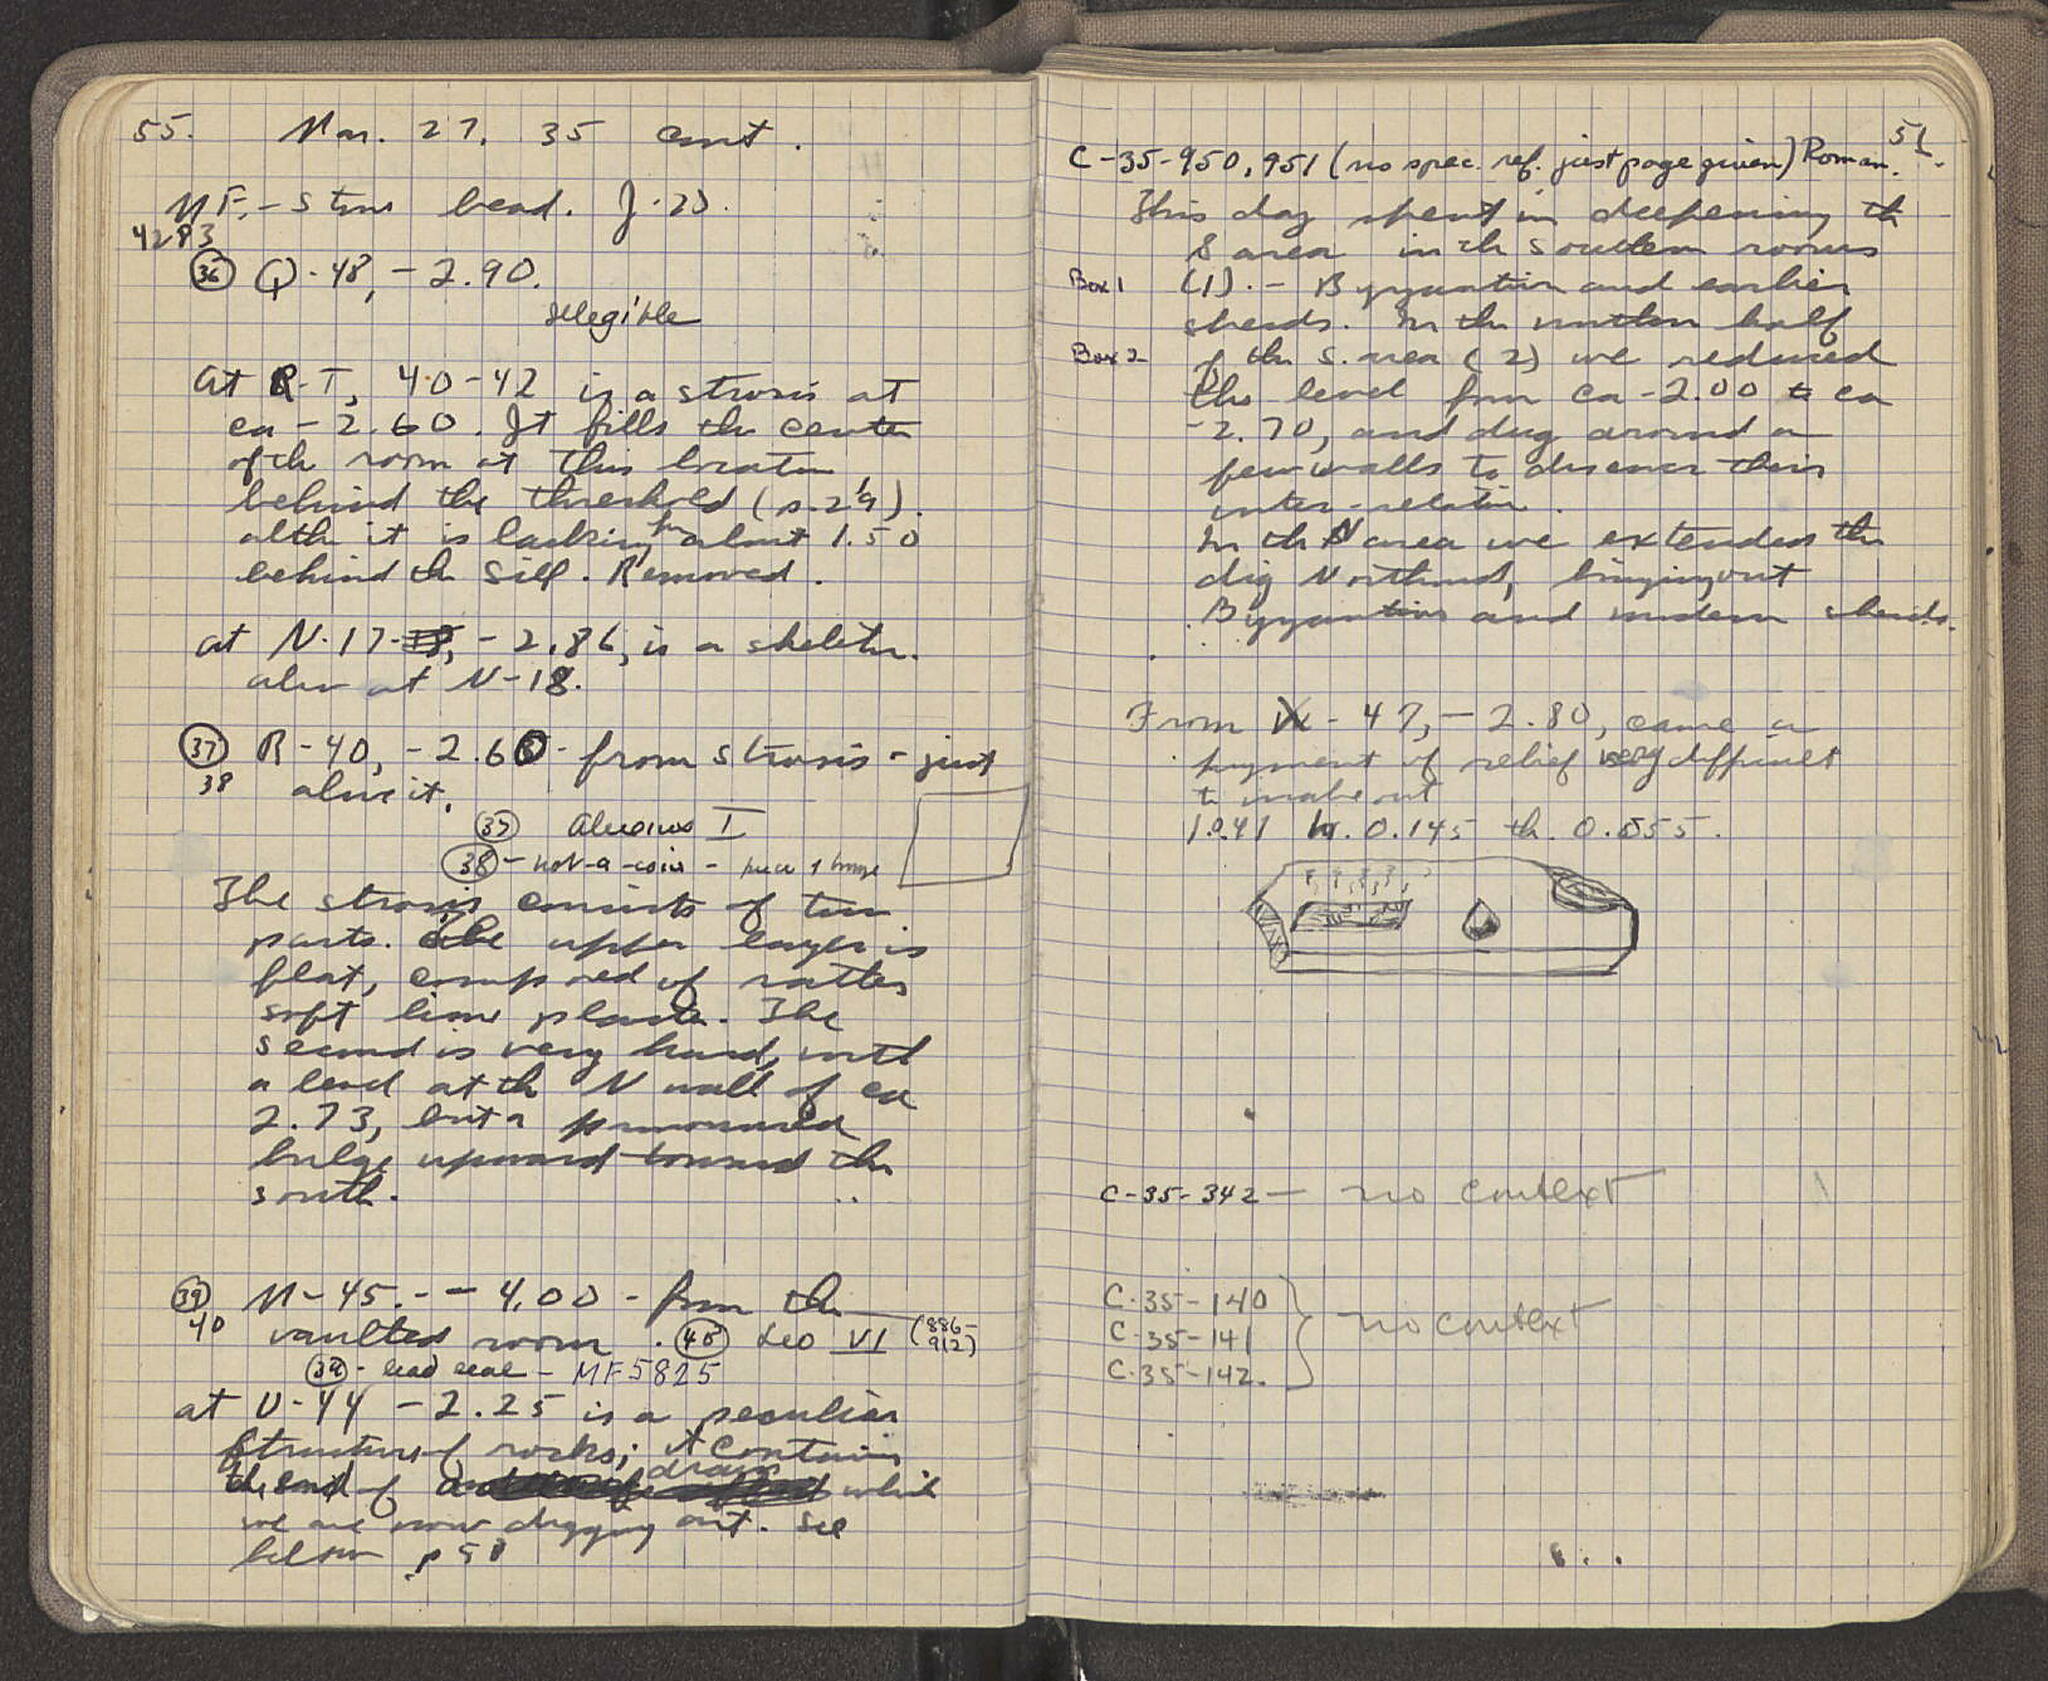 55. Mar. 27, 35 cont.
MF.- stone bead. J-20.
4283
36 Q-48, -2.90.
illegible
at R-T, 40-42 is a strosis at
ca -2.60. It fills the center
of th room at this location
behind the threshold (p.29).
altho it is lacking for about 1.50
behind th sill. Removed.
at N-17-18, -2.86, is a skeleton.
also at N-18.
37 R-40, -2.60 - from strosis - just
38 above it.
37 Alexius I
38 - not-a-coin - piece of bronze
The strosis consists of two
parts. The upper layer is
flat, composed of rather
soft lime plaster. The
second is very hard, with
a level at th N wall of ca
2.73, but a pronounced
bulge upward toward the
south.
39 M-45. - - 4.00 - from the
40 vaulted room. 40 Leo VI (886-
912)
39 - lead seal - MF 5825
at U-44 -2.25 is a peculiar
structure of rocks; it contains
th end of a drain which
we are now digging out. See
below p 58
51.
C-35-950, 951 (no spec. ref. just page given) Roman.
This day spent in deepening th
S area in th southern rooms
Box 1 (1). - Byzantine and earlier
sherds. In the northern half
Box 2 of the S. area (2) we reduced
the level from ca -2.00 to ca
-2.70, and dug around a
few walls to discover their
inter-relation.
In th N area we extended the
dig Northward, bringing out
Byzantine and modern sherds.
From - 47, -2.80, came a
fragment of relief very difficult
to make out
l. 0.41 w. 0.145 th. 0.055.
C-35-342 - no context
C-35-140
C-35-141 no context
C-35-142.